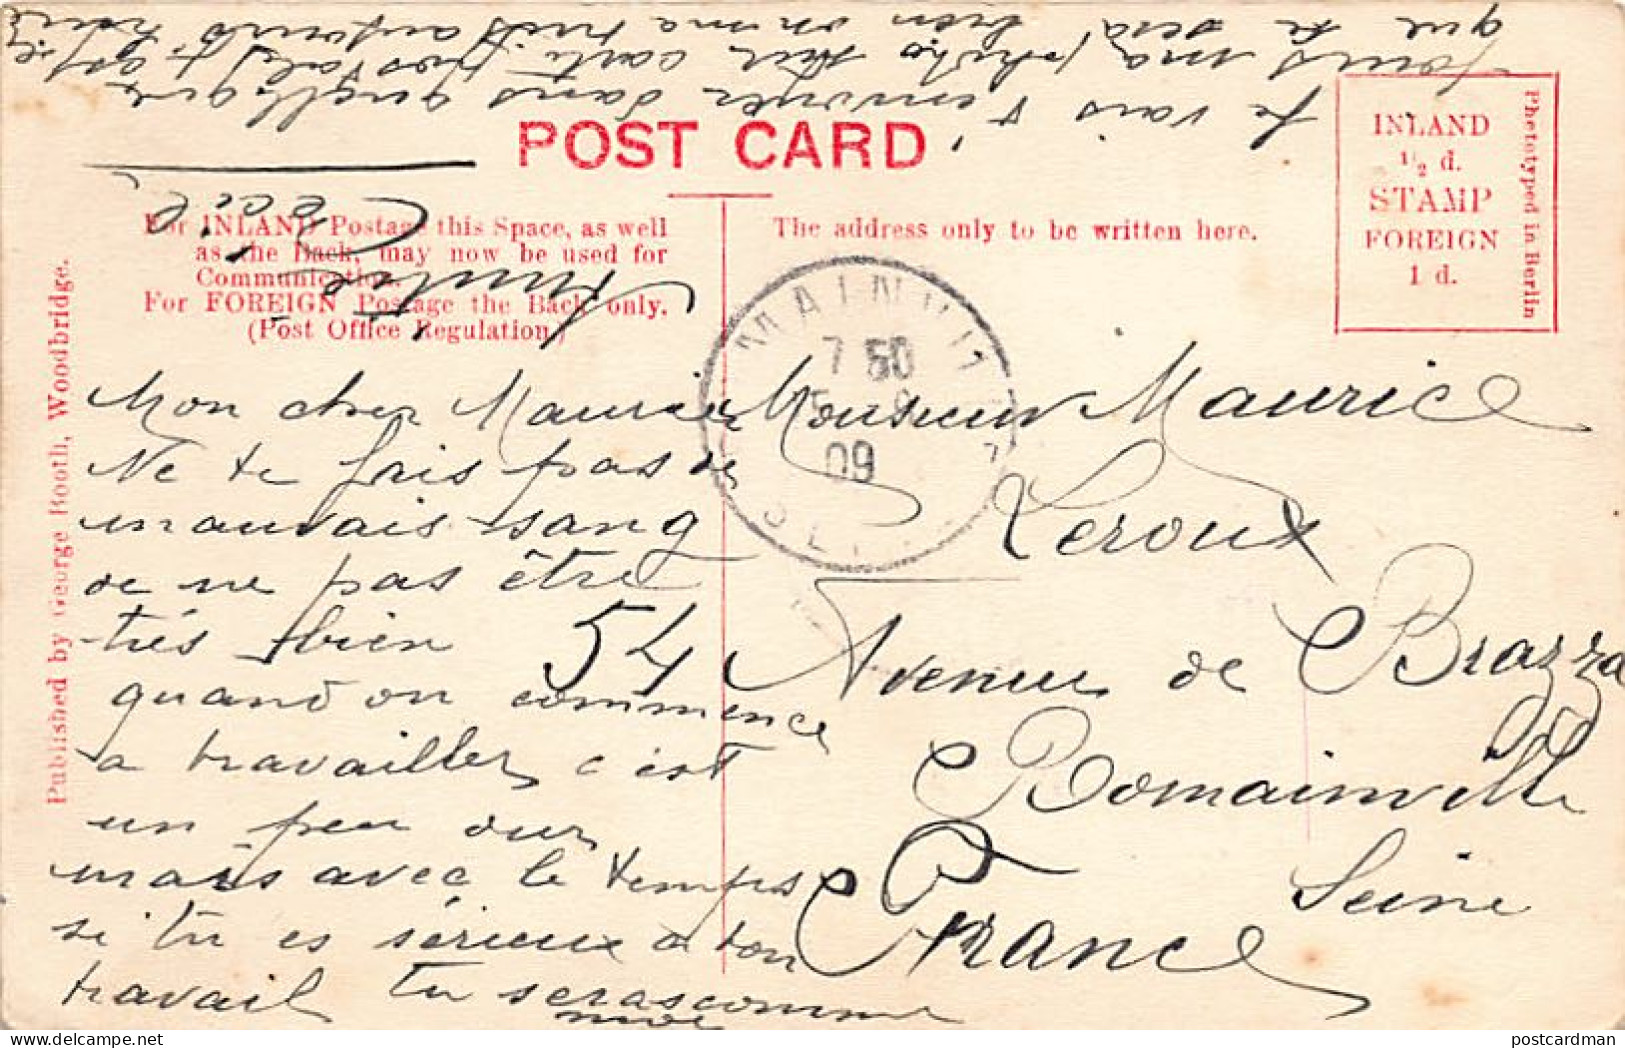 POST CARD
For INLAND Postage this Space, as well
as the Back, may now be used for
Communication.
For FOREIGN Postage the Back only.
(Post Office Regulation)
The address only to be written here.
INLAND
1/2 d.
STAMP
FOREIGN
1 d.
Phototyped in Berlin
Published by George Booth, Woodbridge.
7 50
09
Mon cher Maurice
Ne te fais pas de
mauvais sang
de ne pas être
très bien
quand on commence
a travailler c'est
un peu dur
mais avec le temps
si tu es sérieux a ton
travail tu seras comme
moi
Monsieur Maurice
Leroux
54 Avenue de Brazza
Romainville
Seine
France
Je vais t'envoyer dans quelque
jours ma photo sur carte postale
que te sera bien on m'a
Cecil
postcardman